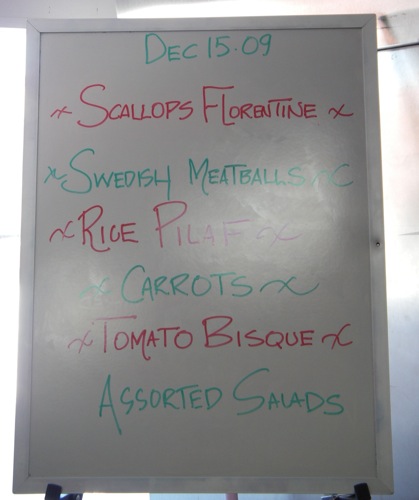 DEC 15.09
SCALLOPS FLORENTINE
SWEDISH MEATBALLS
RICE PILAF
CARROTS
TOMATO BISQUE
ASSORTED SALADS